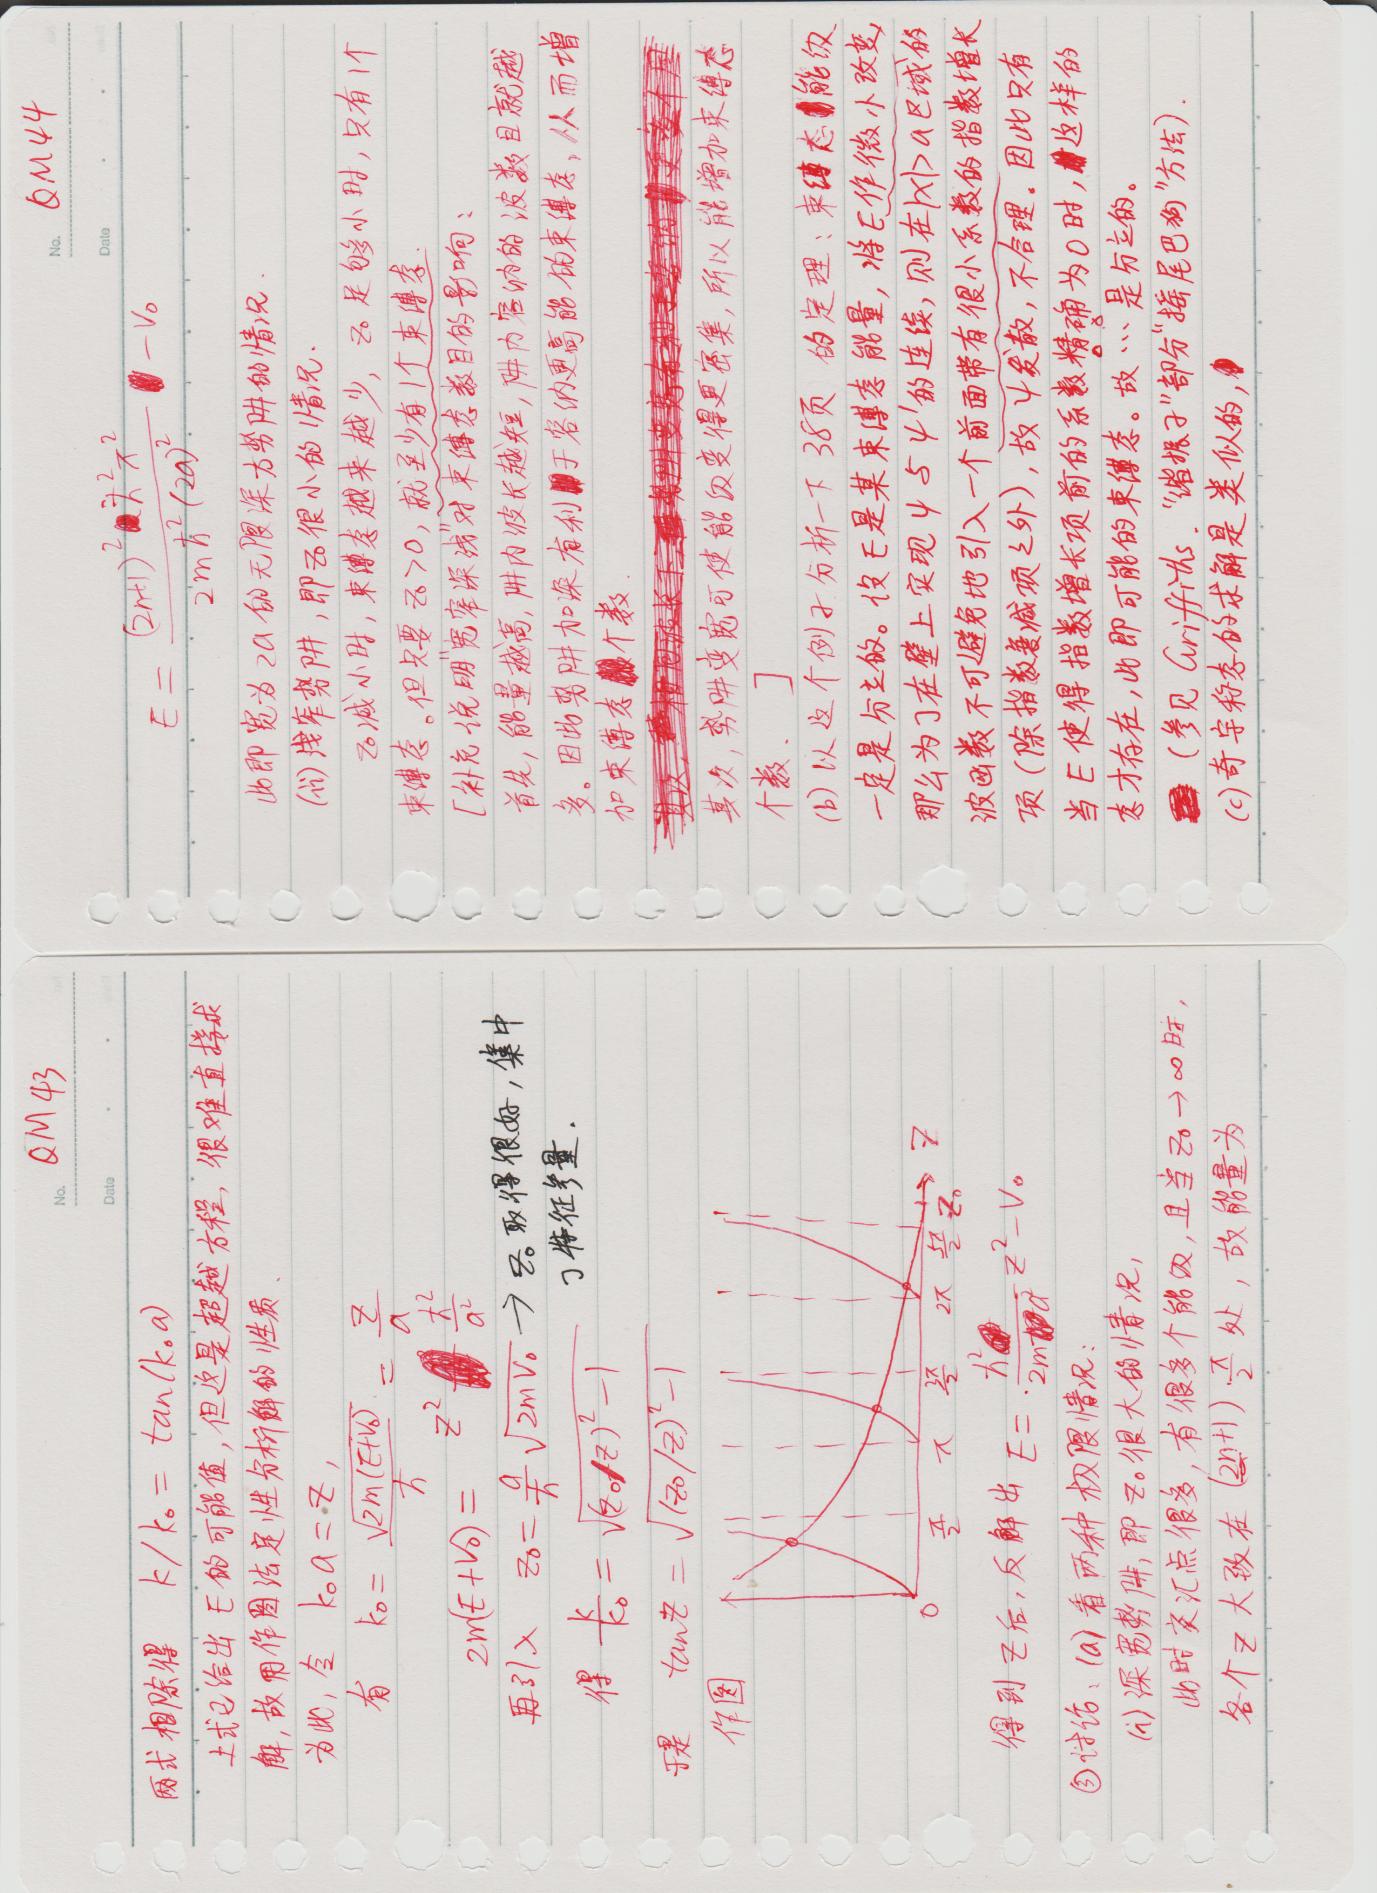 No. QM 43
Date
两式相除得 k/k₀ = tan(k₀a)
上式已给出 E 的可能值,但这是超越方程,很难直接求
解,故用作图法定性分析解的性质.
为此,令 k₀a = z,
有 k₀ = √(2m(E+V₀))/ħ = z/a
2m(E+V₀) = z² ħ²/a²
再引入 z₀ = a/ħ √(2mV₀) → z₀取得很好,集中
了特征参量.
得 k/k₀ = √((z₀/z)²-1)
于是 tanz = √((z₀/z)²-1)
作图
0 π/2 π 3π/2 2π 5π/2 z₀ z
得到 z 后,反解出 E = ħ²/2ma² z² - V₀
③讨论:(a)看两种极限情况:
(i)深宽势阱,即 z₀ 很大的情况,
此时交汇点很多,有很多个能级,且当 z₀→∞时,
各个 z 大致在 (2n+1)·π/2 处,故能量为
No. QM 44
Date
E = (2n+1)²ħ²π²/2mħ²(2a)² - V₀
此即宽为 2a 的无限深方势阱的情况.
(ii)浅窄势阱,即z₀很小的情况.
z₀减小时,束缚态越来越少,z₀足够小时,只有1个
束缚态。但只要 z₀>0,就至少有1个束缚态.
[补充说明"宽窄深浅"对束缚态数目的影响:
首先,能量越高,阱内波长越短,阱内容纳的波数目就越
多。因此势阱加深有利于容纳更高能的束缚态,从而增
加束缚态个数.
其次,势阱变宽可使能级变得更密集,所以能增加束缚态
个数. ]
(b)以这个例子分析一下 38页 的定理:束缚态能级
一定是分立的。设E是某束缚态能量,将E作微小改变,
那么为了在壁上实现 ψ 与 ψ' 的连续,则在|x|>a区域的
波函数不可避免地引入一个前面带有很小系数的指数增长
项(除指数衰减项之外),故ψ发散,不合理。因此只有
当E使得指数增长项前的系数精确为0时,这样的
态才存在,此即可能的束缚态。故…是分立的。
(参见 Griffiths."谐振子"部分"摇尾巴狗"方法).
(c)奇宇称态的求解是类似的,